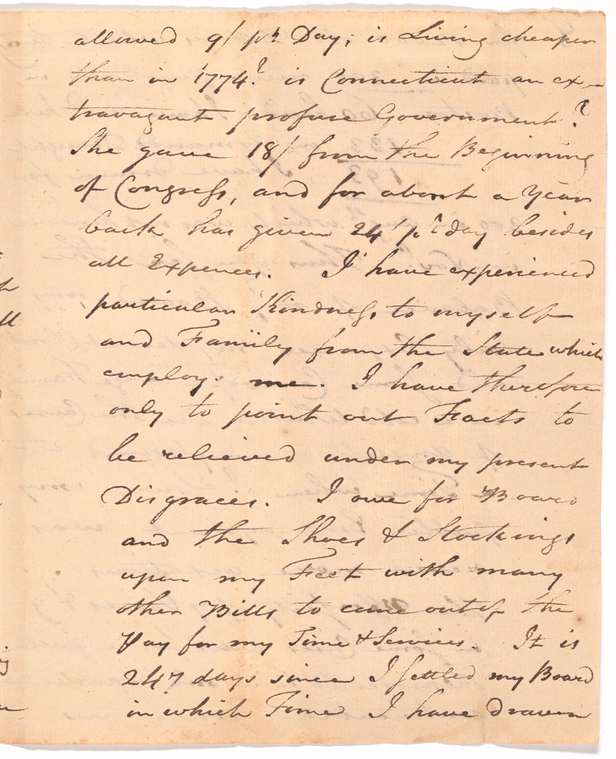 allowed 9/ pr. Day; is Living cheaper
than in 1774? is Connecticut an ex-
travagant profuse Government?
She gave 18/ from the Beginning
of Congress, and for about a Year
back has given 24/ pr. day besides
all Expences. I have experienced
particular Kindness to myself
and Family from the State which
employs me. I have therefore
only to point out Facts to
be relieved under my present
Disgraces. I owe for Board
and the Shoes & Stockings
upon my Feet with many
other Bills to come out of the
Pay for my Time & Services. It is
247 days since I settled my Board
in which Time I have drawn